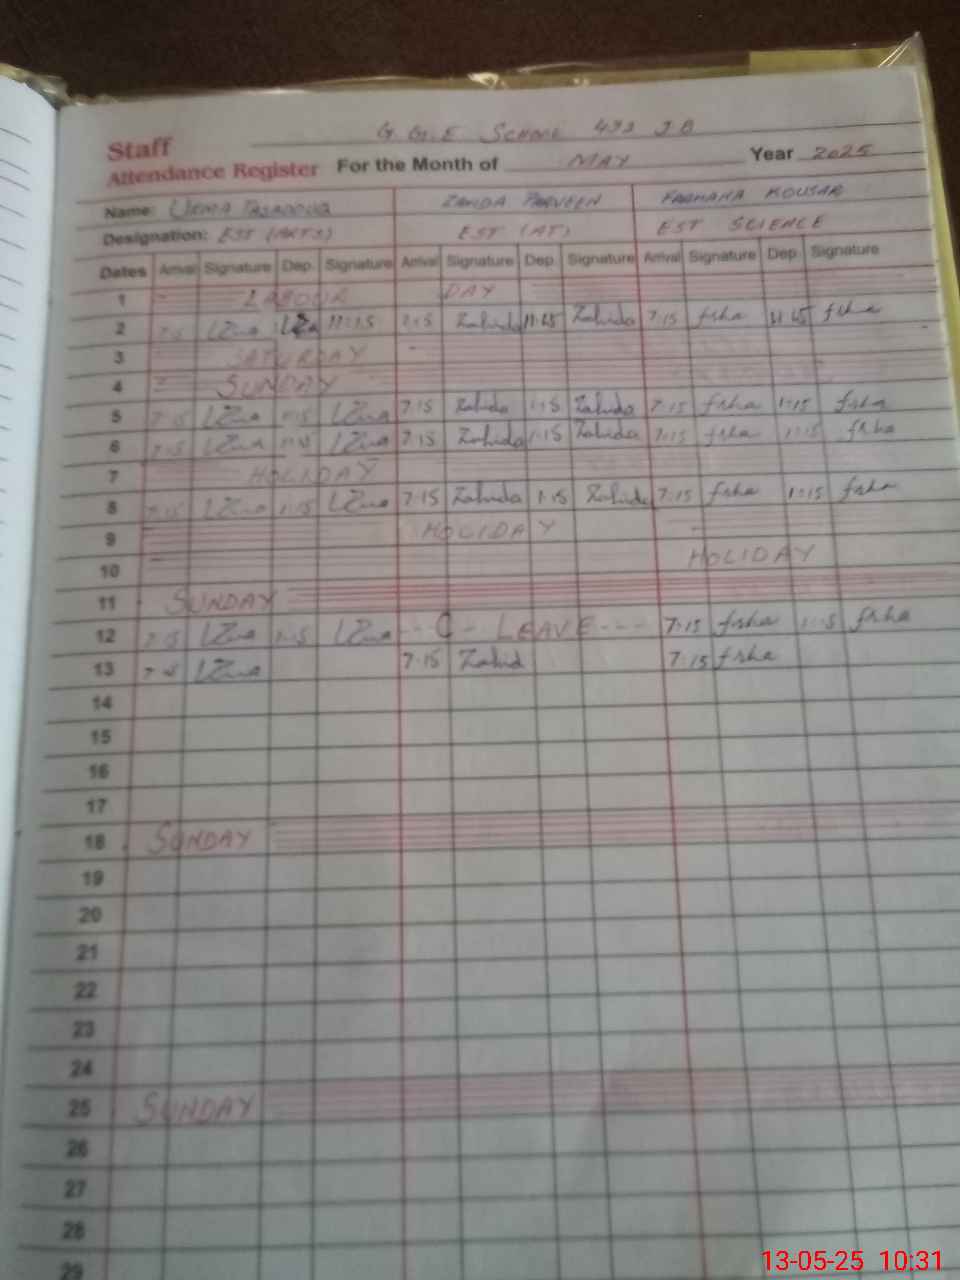 G. G. E School 493 J B
Staff
Attendance Register For the Month of MAY Year 2025
Name: ZAHIDA PARVEEN FARHANA KOUSAR
Designation: EST (ARTS) EST (AT) EST SCIENCE
Dates Arrival Signature Dep. Signature Arrival Signature Dep. Signature Arrival Signature Dep. Signature
1 LABOUR DAY
2 7:15 11:15 7:15 Zahida 11:15 Zahida 7:15 frha 11:15 frha
3 SATURDAY
4 SUNDAY
5 7:15 1:15 7:15 Zahida 1:15 Zahida 7:15 frha 1:15 frha
6 7:15 1:15 7:15 Zahida 1:15 Zahida 7:15 frha 1:15 frha
7 HOLIDAY
8 7:15 1:15 7:15 Zahida 1:15 Zahida 7:15 frha 1:15 frha
9 HOLIDAY
10 HOLIDAY
11 SUNDAY
12 7:15 1:15 --- C - LEAVE --- 7:15 frha 1:15 frha
13 7:15 7:15 Zahid 7:15 frha
14
15
16
17
18 SUNDAY
19
20
21
22
23
24
25 SUNDAY
26
27
28
29
13-05-25 10:31